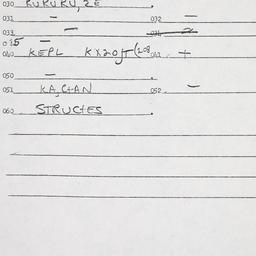 030 KUKUKU, ZE .
031 — 032 —
033 — 034 ~
035 —
040 KEPL KX20FT (208 041 +
050 — .
051 KA, CHAN 052 . —
060 STRUCHES .